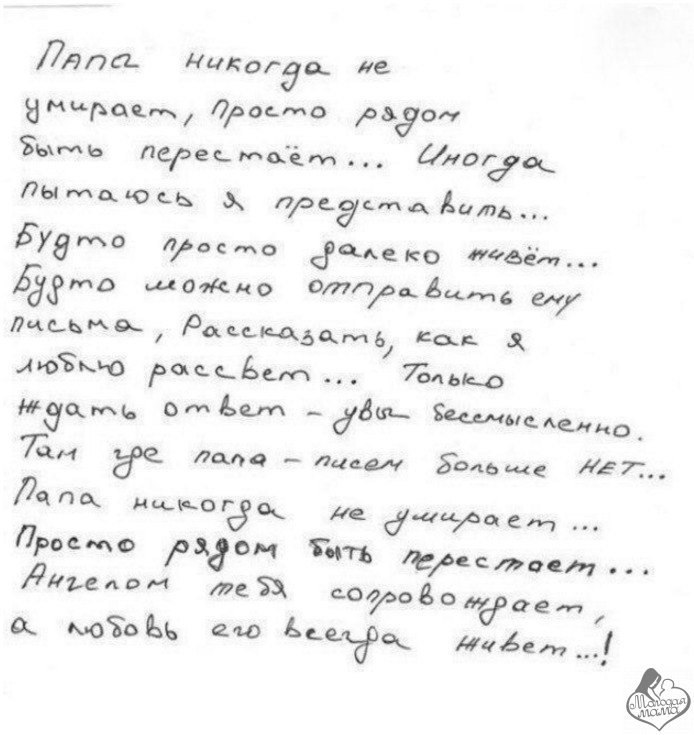 Папа никогда не
умирает, просто рядом
быть перестаёт... Иногда
пытаюсь я представить...
Будто просто далеко живёт...
Будто можно отправить ему
письма, Рассказать, как я
люблю рассвет... Только
ждать ответ - увы бессмысленно.
Там где папа - писем больше НЕТ...
Папа никогда не умирает...
Просто рядом быть перестает...
Ангелом тебя сопровождает,
а любовь его всегда живет...!
Молодая
мама